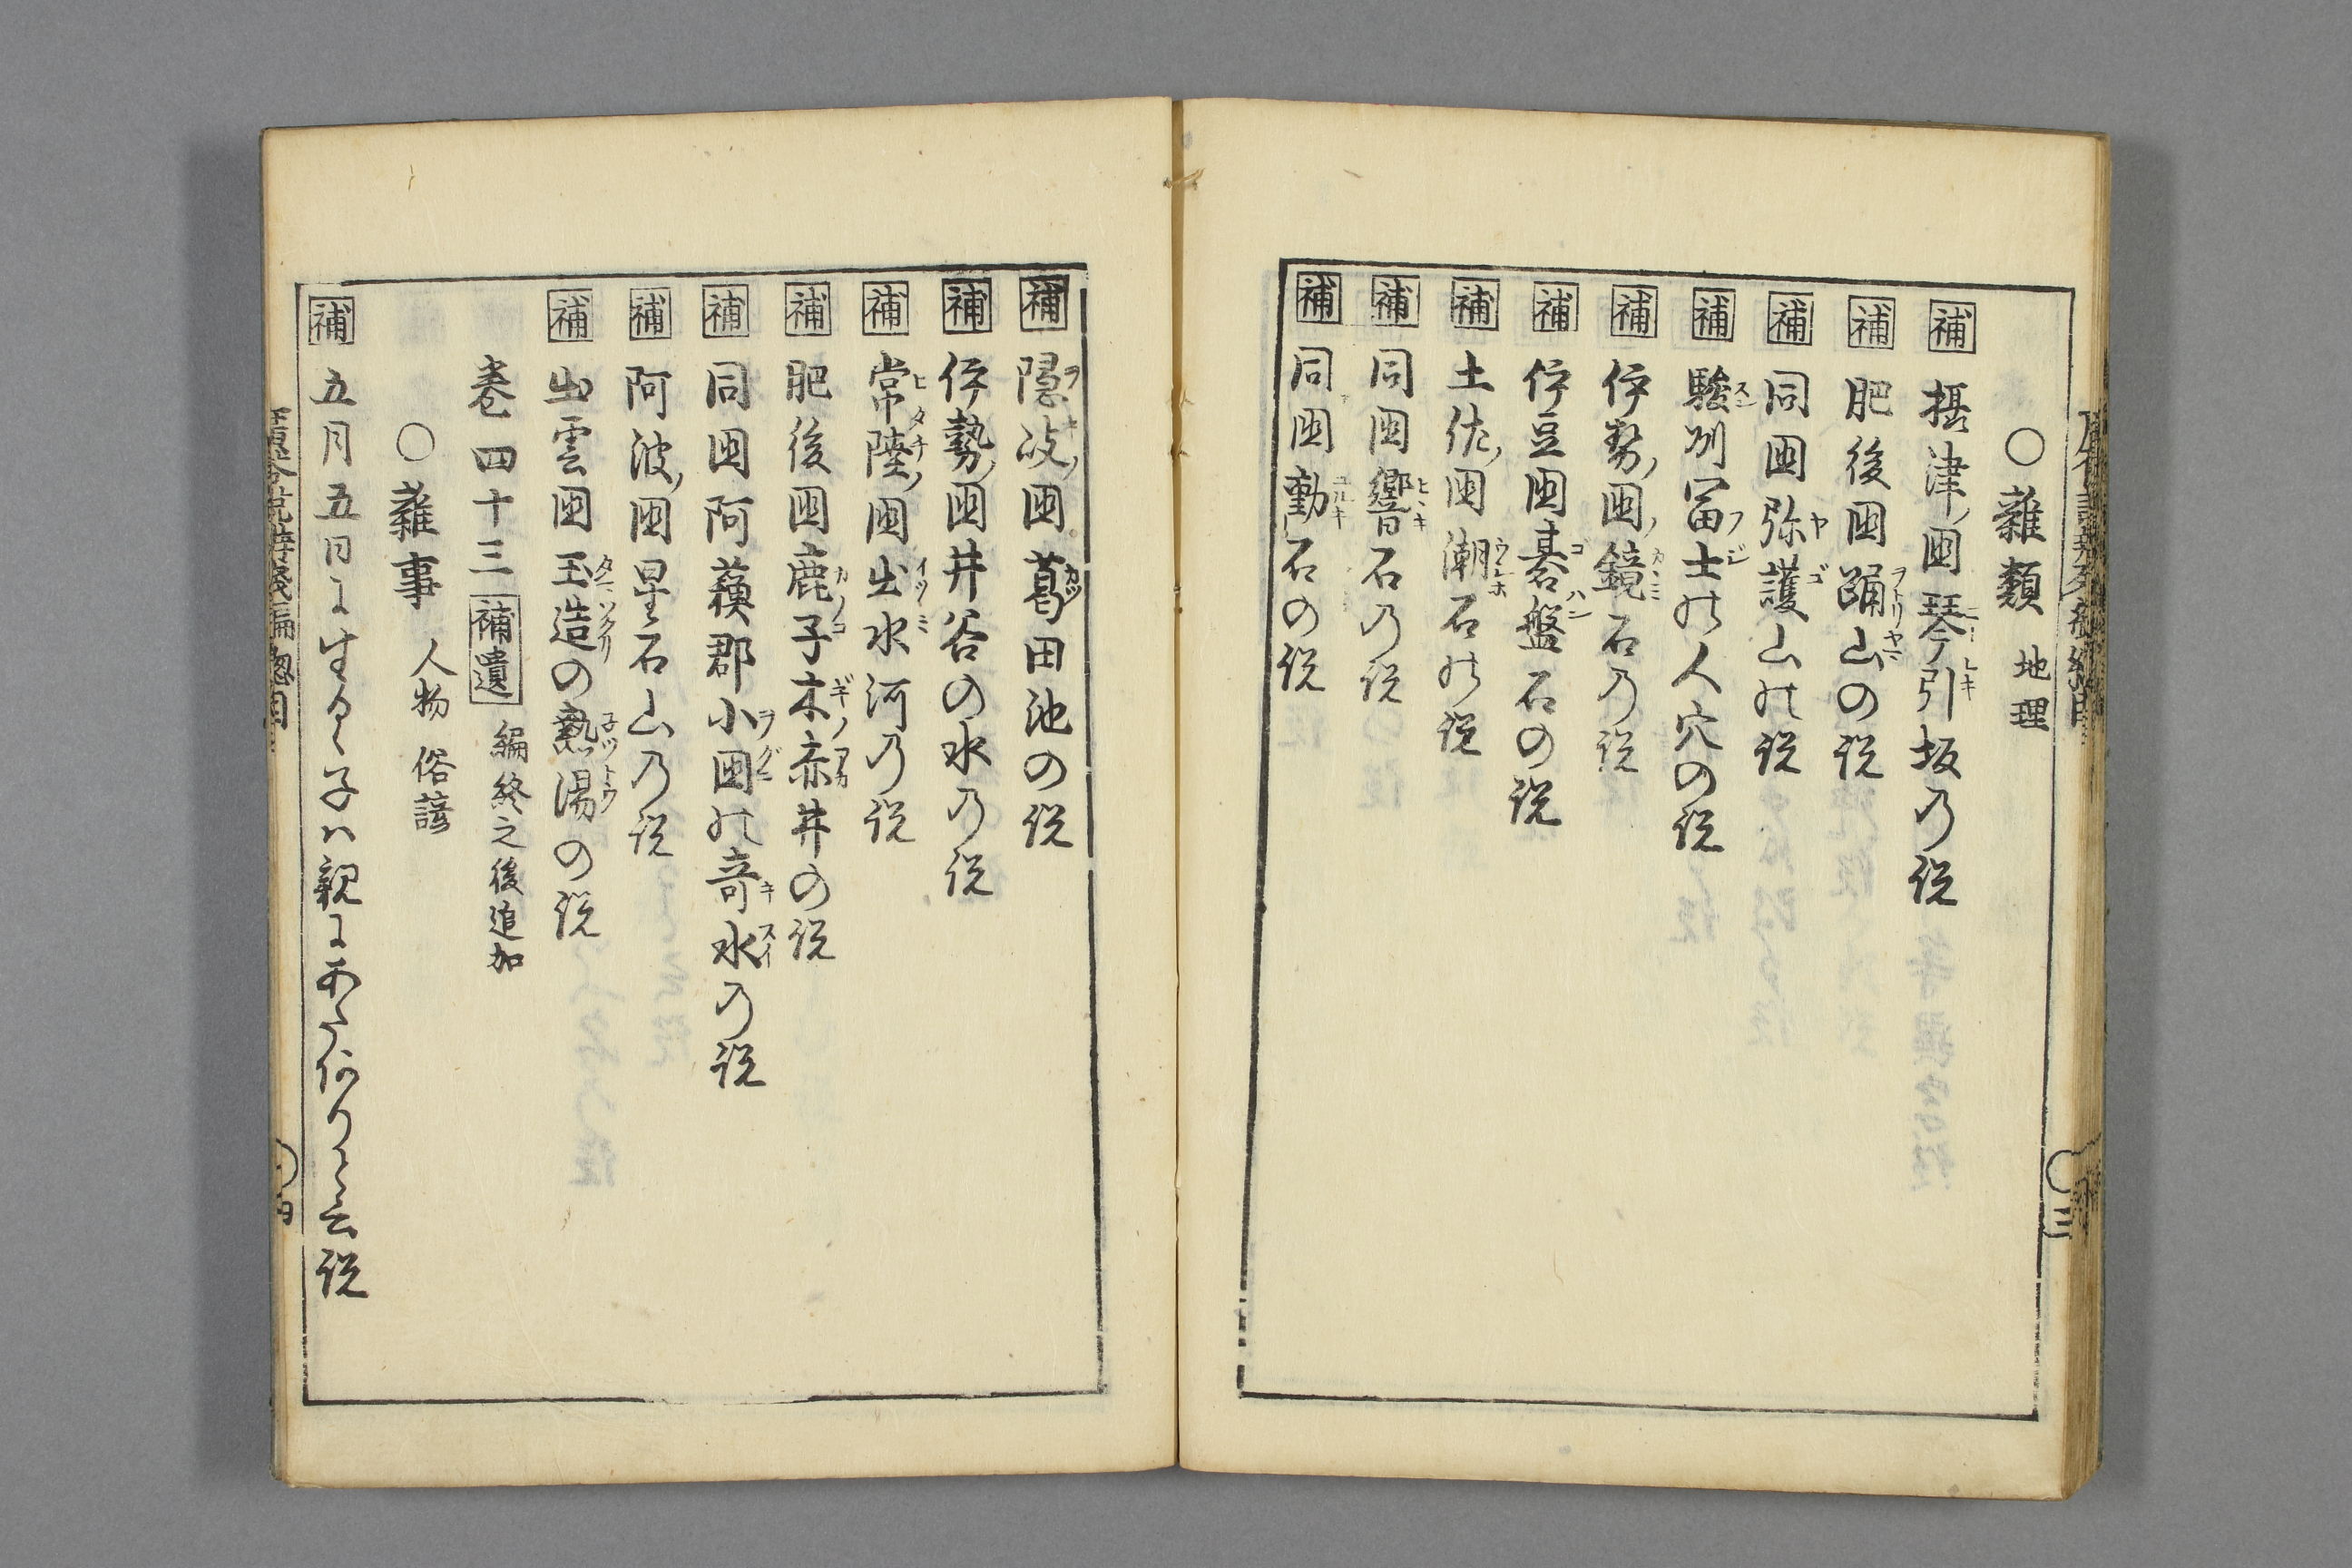 ○雜類 地理
補 摂津ノ国琴引坂の説
補 肥後国踊山の説
補 同国弥護山の説
補 駿州冨士の人穴の説
補 伊勢ノ国ノ鏡石の説
補 伊豆国碁盤石の説
補 土佐ノ国潮石の説
補 同国響石の説
補 同国動石の説
補 隠岐ノ国葛田池の説
補 伊勢ノ国井谷の水の説
補 常陸ノ国出水河の説
補 肥後国鹿子木赤井の説
補 同国阿蘓郡小国の竒水の説
補 阿波ノ国星石山の説
補 出雲国玉造の熱湯の説
巻四十三 補遺 編終之後追加
○雜事 人物 俗諺
補 五月五日に生るゝ子ハ親にあた云説